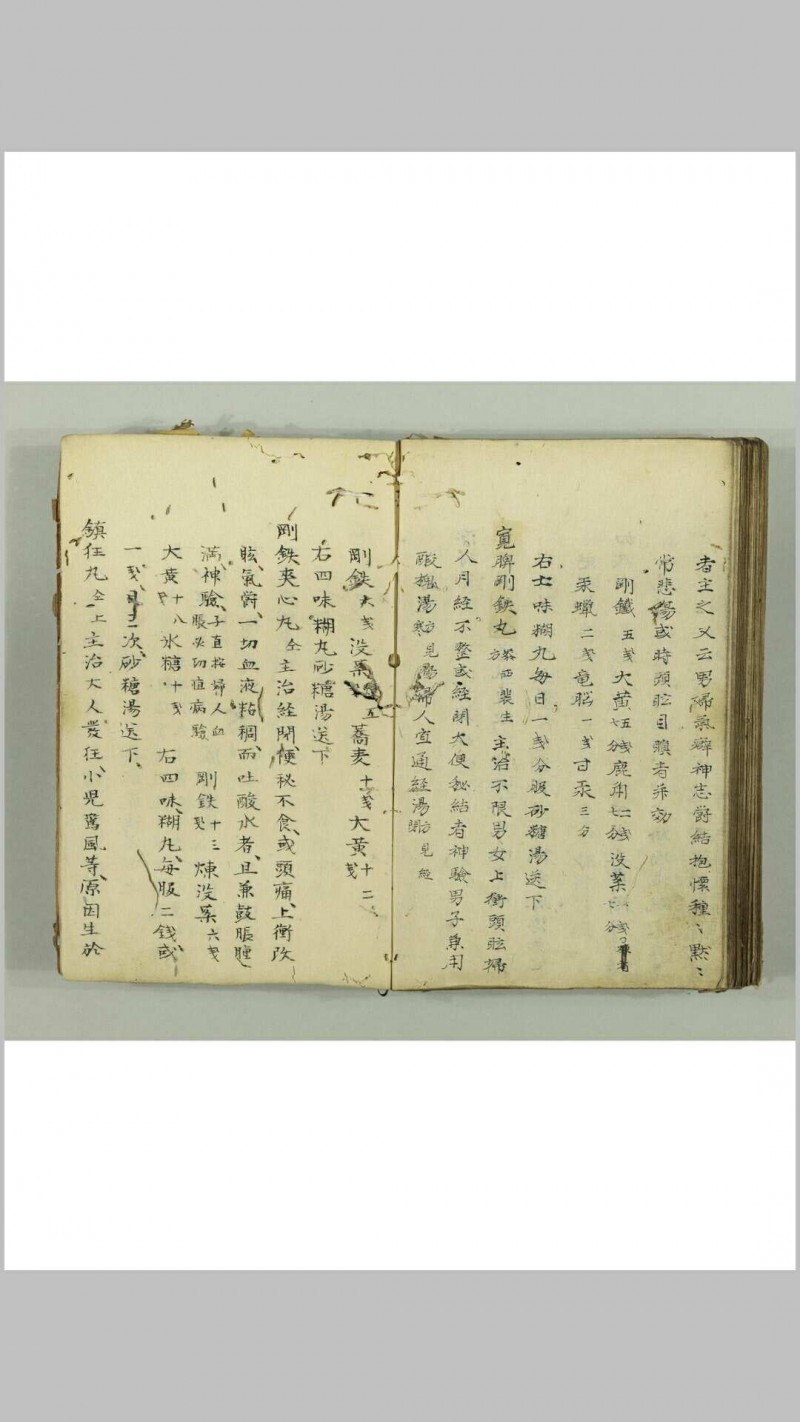 者主之又云男婦氣癖神志欝結抱懷種〻黙〻
常悲傷或時頭眩目瞑者亦効
剛鐵五戔大黄七五分戔鹿角七二分戔没薬
汞蠟二戔竜脳一戔甘汞三分
右七味糊丸毎日一戔分服砂糖湯送下
寛脾剛鉄丸方主治不限男女上衝頭眩婦
人月經不整或経閉大便秘結者神験男子兼用
酸棗湯方見傷寒婦人宜通経湯方見経閉
剛鉄六戔没薬五蕎麦十戔大黄十二戔
右四味糊丸砂糖湯送下
剛鉄爽心丸仝主治経閉、便秘不食、或頭痛、上衝
眩、氣欝、一切血液粘稠、而吐酸水者、且兼鼓脹腫
満神験、剛鉄十三戔煉没薬六戔
大黄十八戔氷糖十戔右四味糊丸、毎服二錢或
一戔、日二次、砂糖湯送下、
鎮狂丸仝上主治大人發狂小児驚風等、原因生於